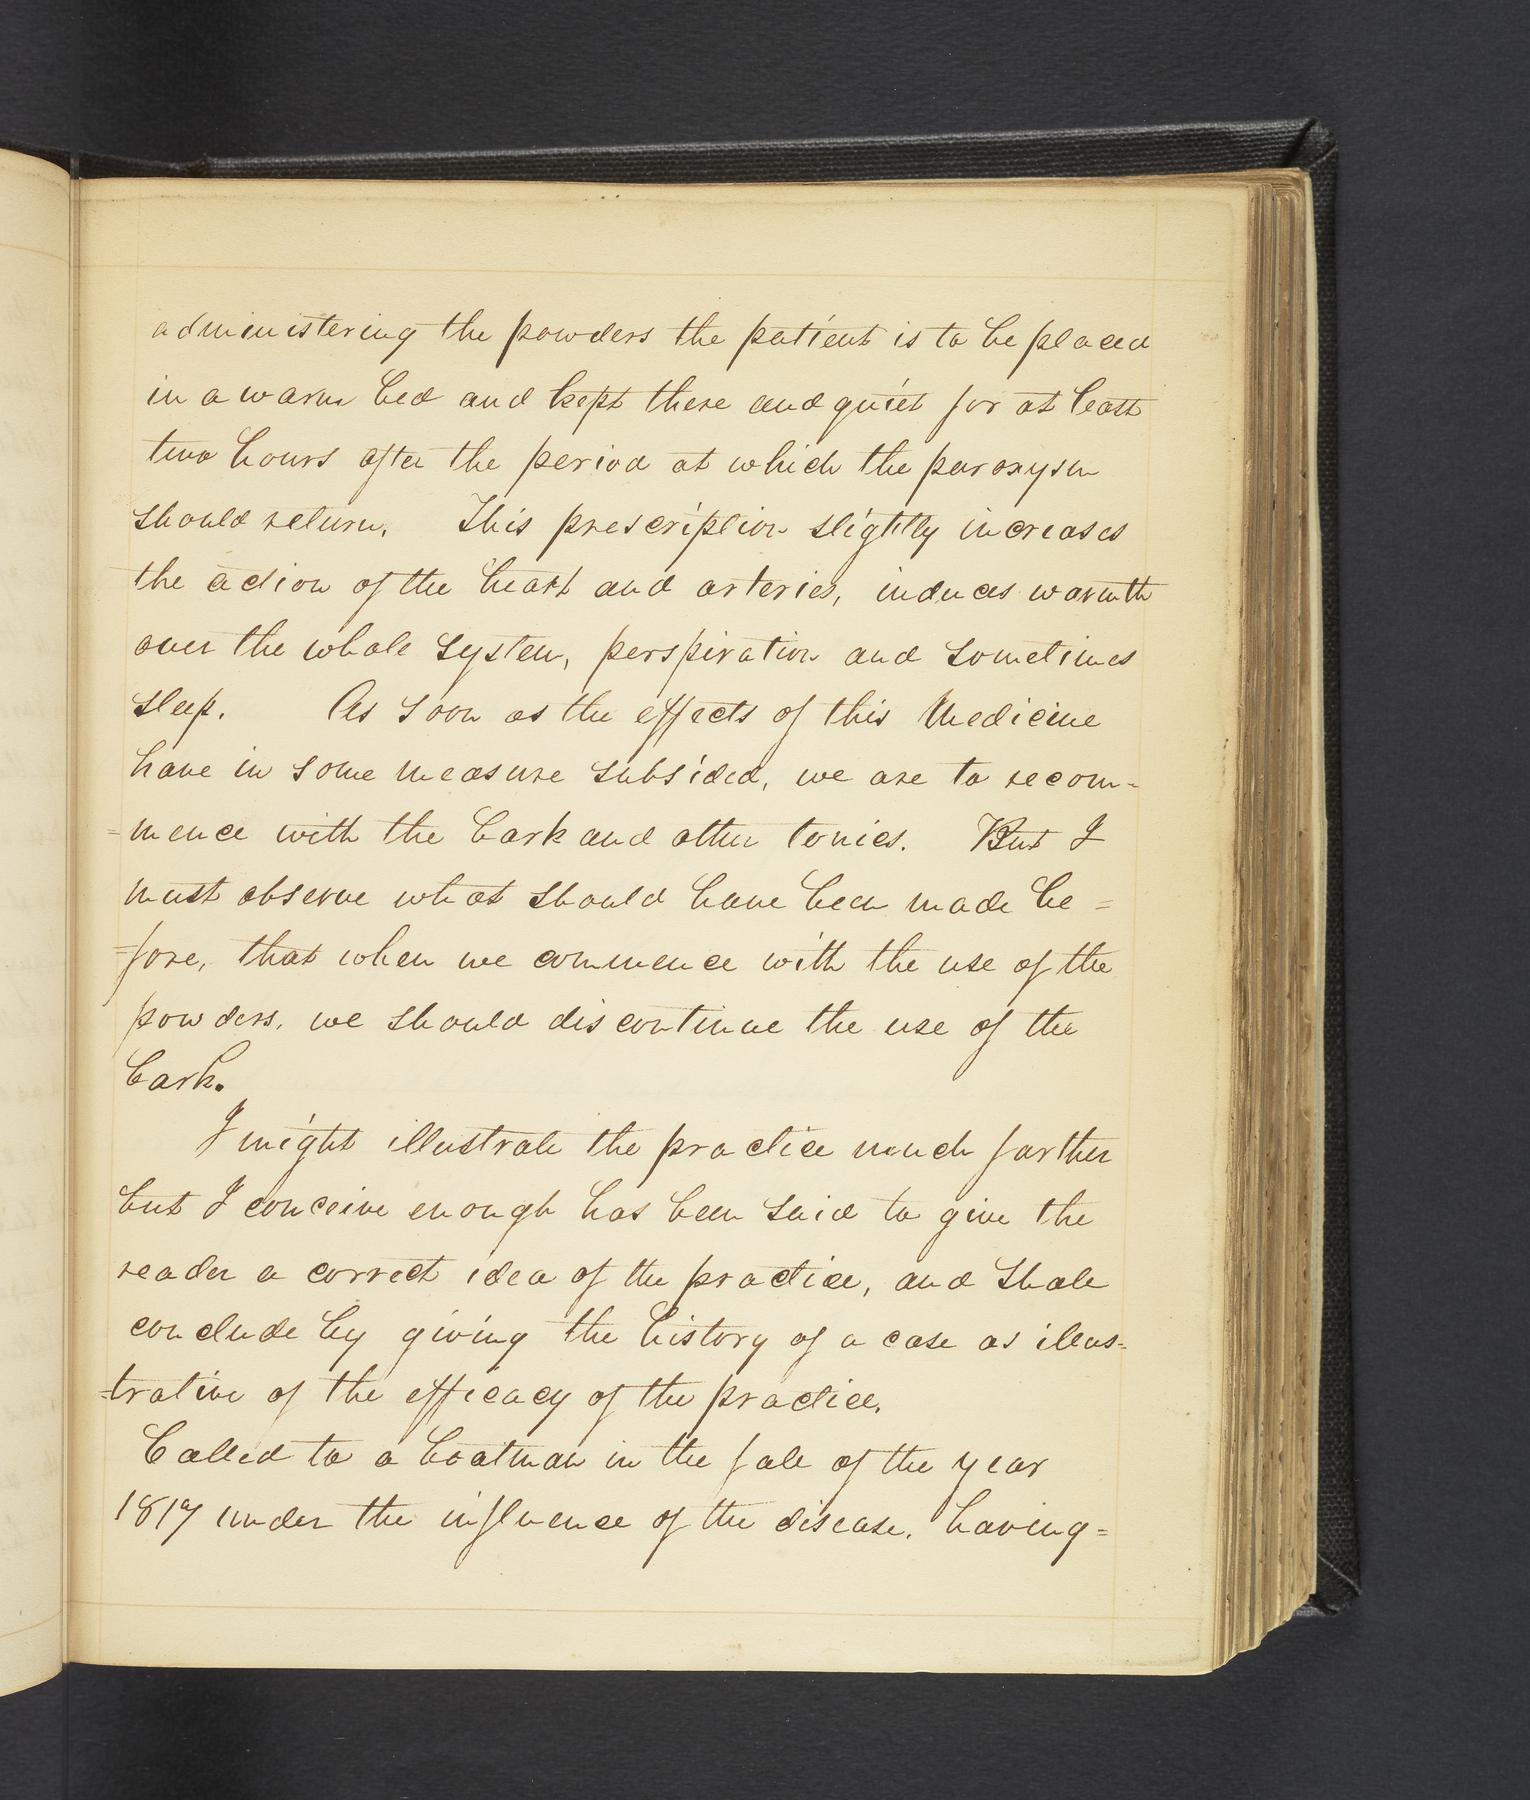 administering the powders the patient is to be placed
in a warm bed and kept there and quiet for at least
two hours after the period at which the paroxysm
should return. This prescription slightly increases
the action of the heart and arteries, induces warmth
over the whole system, perspiration and sometimes
sleep. As soon as the effects of this Medicine
have in some measure subsided, we are to recom-
=mence with the bark and other tonics. But I
must observe what should have been made be=
=fore, that when we commence with the use of the
powders, we should discontinue the use of the
bark.
I might illustrate the practice much farther
but I conceive enough has been said to give the
reader a correct idea of the practice, and shall
conclude by giving the history of a case as illus-
=trative of the efficacy of the practice.
Called to a boatman in the fall of the year
1817 under the influence of the disease. having=